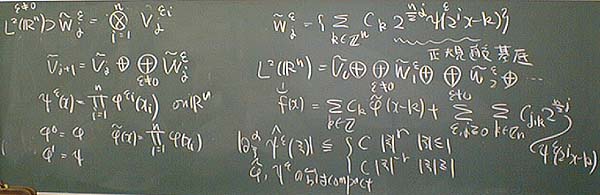 ε≠0
L²(ℝⁿ) ⊃ W̃_j^ε = ⊗_{i=1}^n V_j^{εi}
Ṽ_{j+1} = Ṽ_j ⊕ ⊕_{ε≠0} W̃_j^ε
ψ^ε(x) = ∏_{i=1}^n φ^{εi}(x_i) on ℝⁿ
φ⁰ = φ φ̃(x) = ∏_{i=1}^n φ(x_i)
φ¹ = ψ
W̃_j^ε = { Σ_{k∈ℤⁿ} C_k 2^{nj/2} ψ^ε(2^j x-k) }
正規直交基底
L²(ℝⁿ) = Ṽ_0 ⊕ ⊕_{ε≠0} W̃_1^ε ⊕ ⊕_{ε≠0} W̃_2^ε ⊕ …
f(x) = Σ_{k∈ℤ} C_k φ̃(x-k) + Σ_{ε,j≥0} Σ_{k∈ℤⁿ} C_{j,k} 2^{nj/2}
ψ^ε(2^j x-k)
|∂_ξ^α ψ̂^ε(ξ)| ≦ { C |ξ|^r |ξ|≦1
C |ξ|^{-r} |ξ|≧1
φ̃, ψ^ε の台は compact